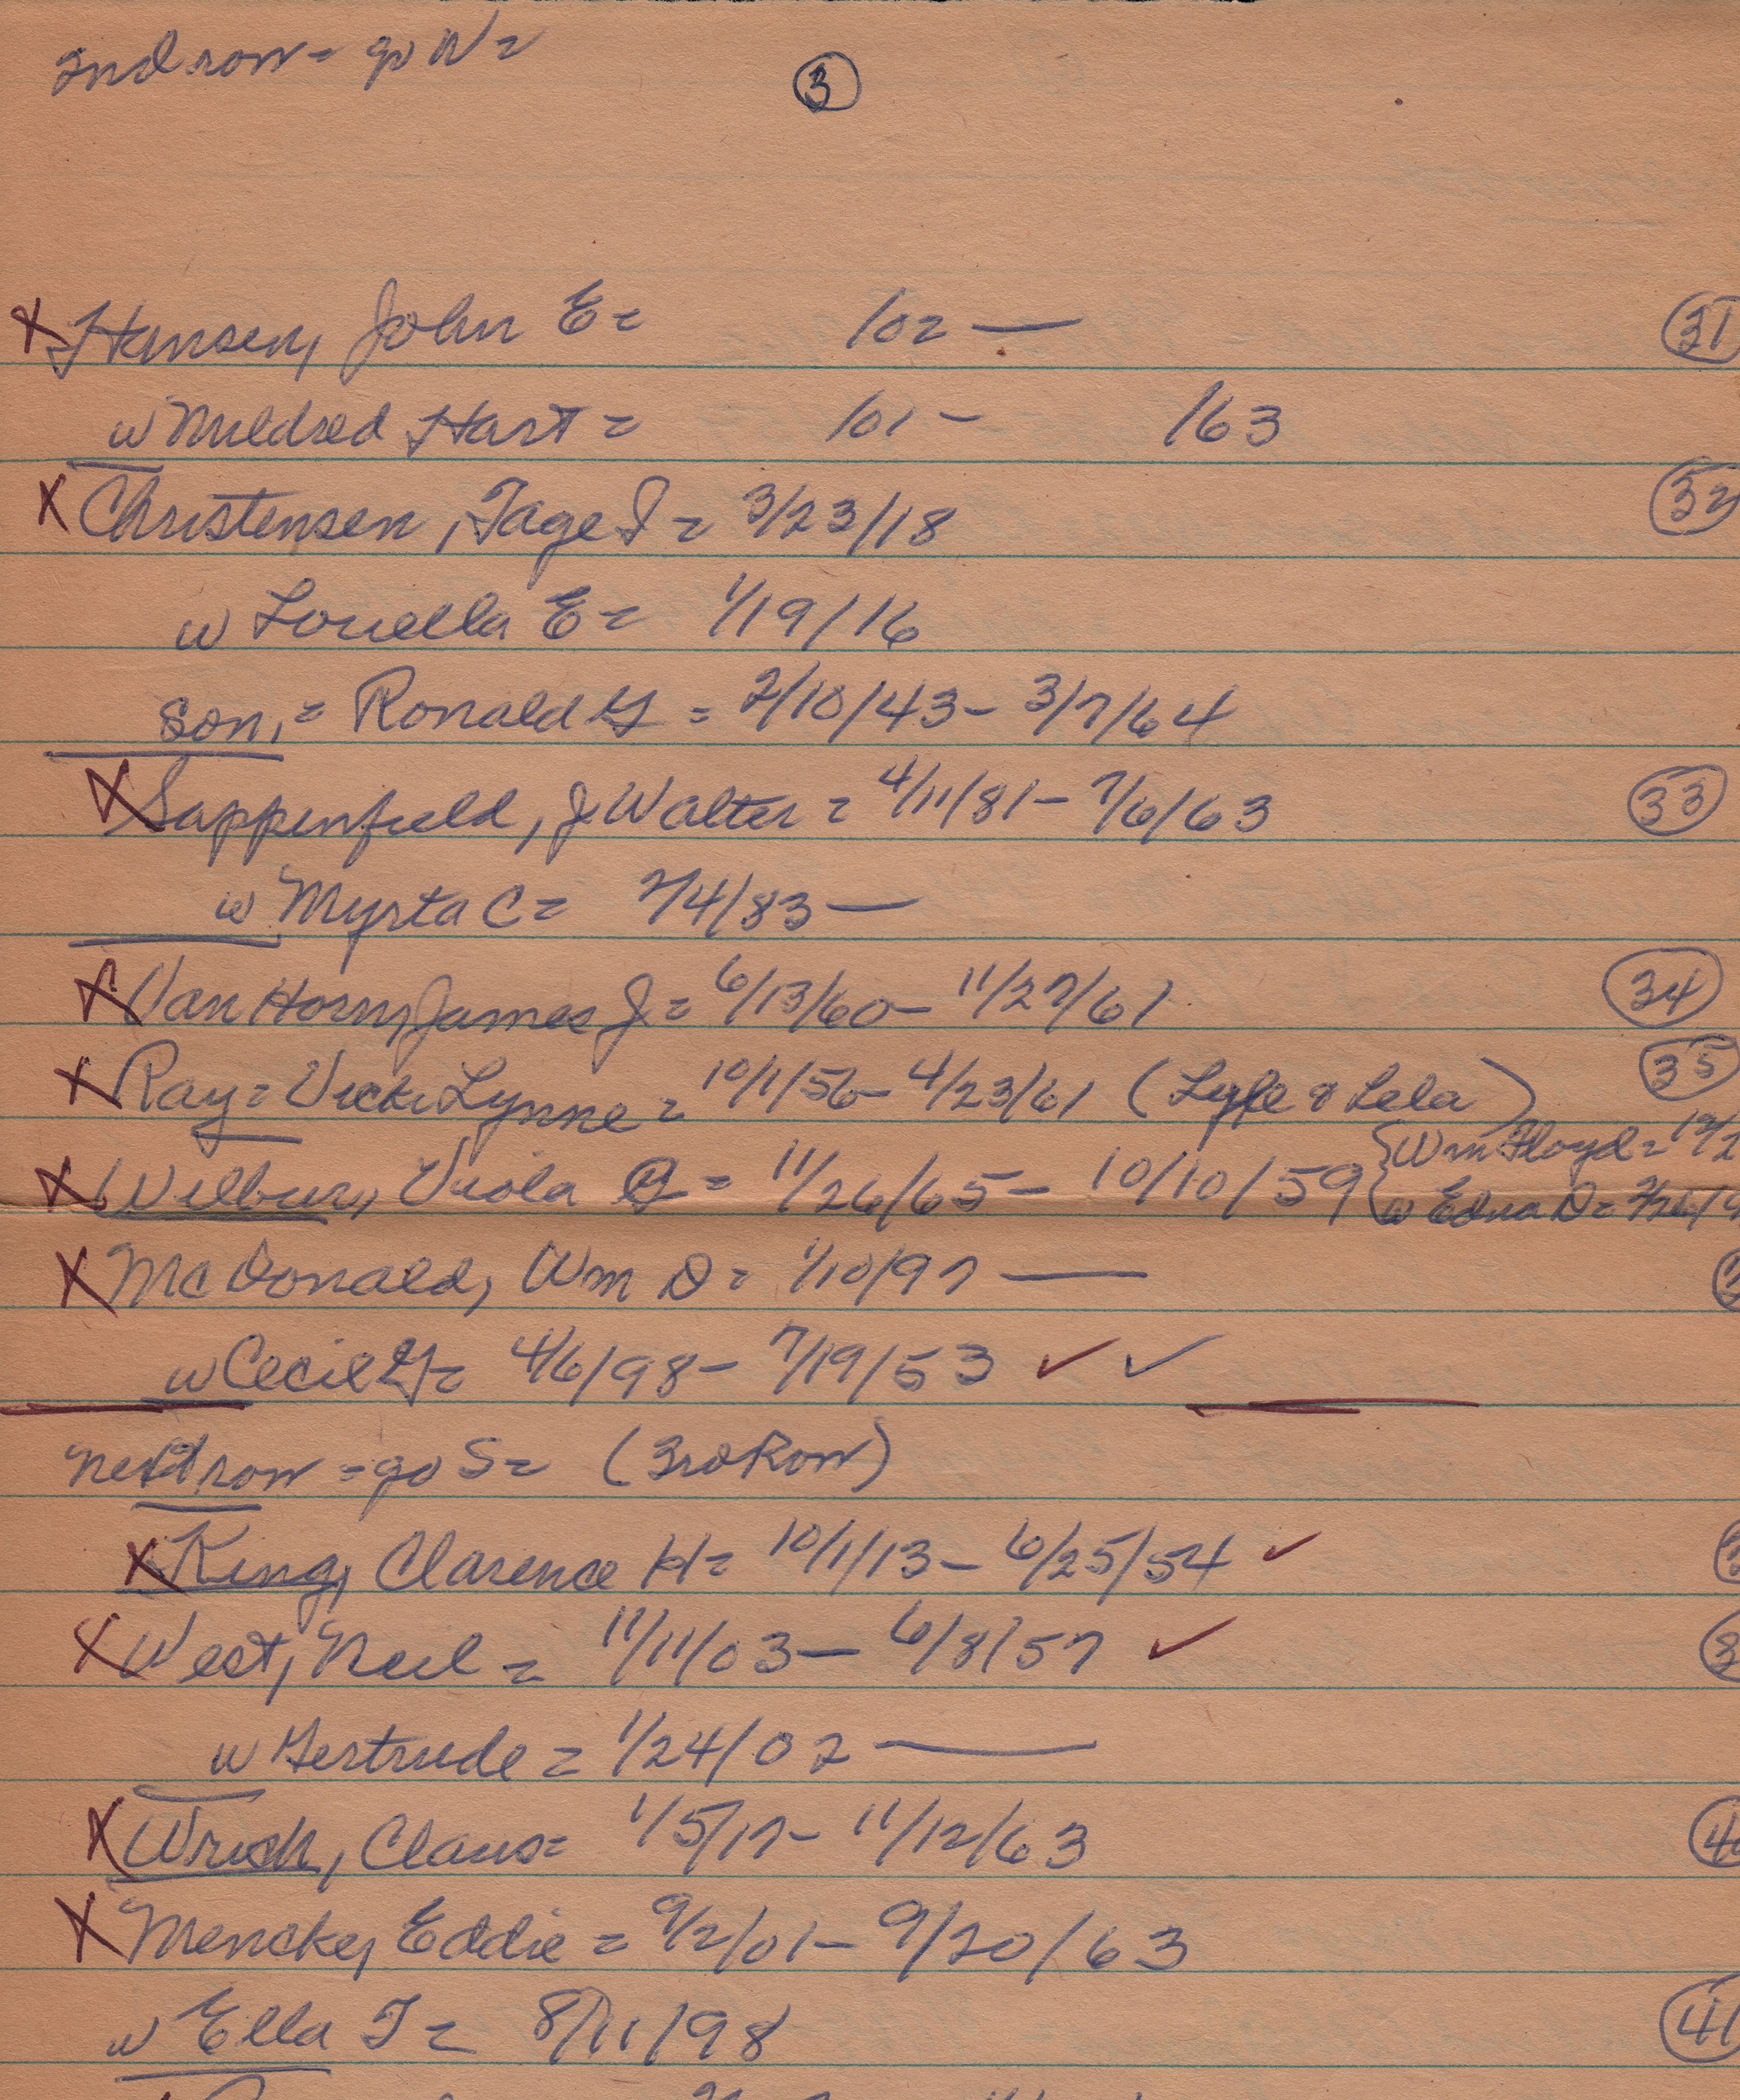 2nd row = go N =
3
X Hansen, John E = /02 — 31
w Mildred Hart = /01 - /63
X Christensen, Tage = 3/23/18 32
w Louella E = 1/19/16
son, = Ronald G = 2/10/43 - 3/7/64
X Sappenfield, J Walter = 4/11/81 - 7/6/63 33
w Myrta C = 7/4/83 —
X Van Horn, James J = 6/13/60 - 11/27/61 34
X Ray = Vicki Lynne = 10/1/56 - 4/23/61 (Lyle & Lela) 35
X Wilbur, Viola = 11/26/65 - 10/10/59 { Wm Floyd = 12/2
w Edna D = 2/26/
X McDonald, Wm D = 1/10/97 —
w Cecil G = 4/6/98 - 7/19/53 ✓ ✓
next row = go S = (3rd Row)
X King, Clarence H = 10/1/13 - 6/25/54 ✓
X West, Neil = 11/11/03 — 6/8/57 ✓
w Gertrude = 1/24/02 —
X Wrich, Claus = 1/5/17 - 11/12/63
X Mencke, Eddie = 9/2/01 - 9/20/63
w Ella T = 8/11/98 41